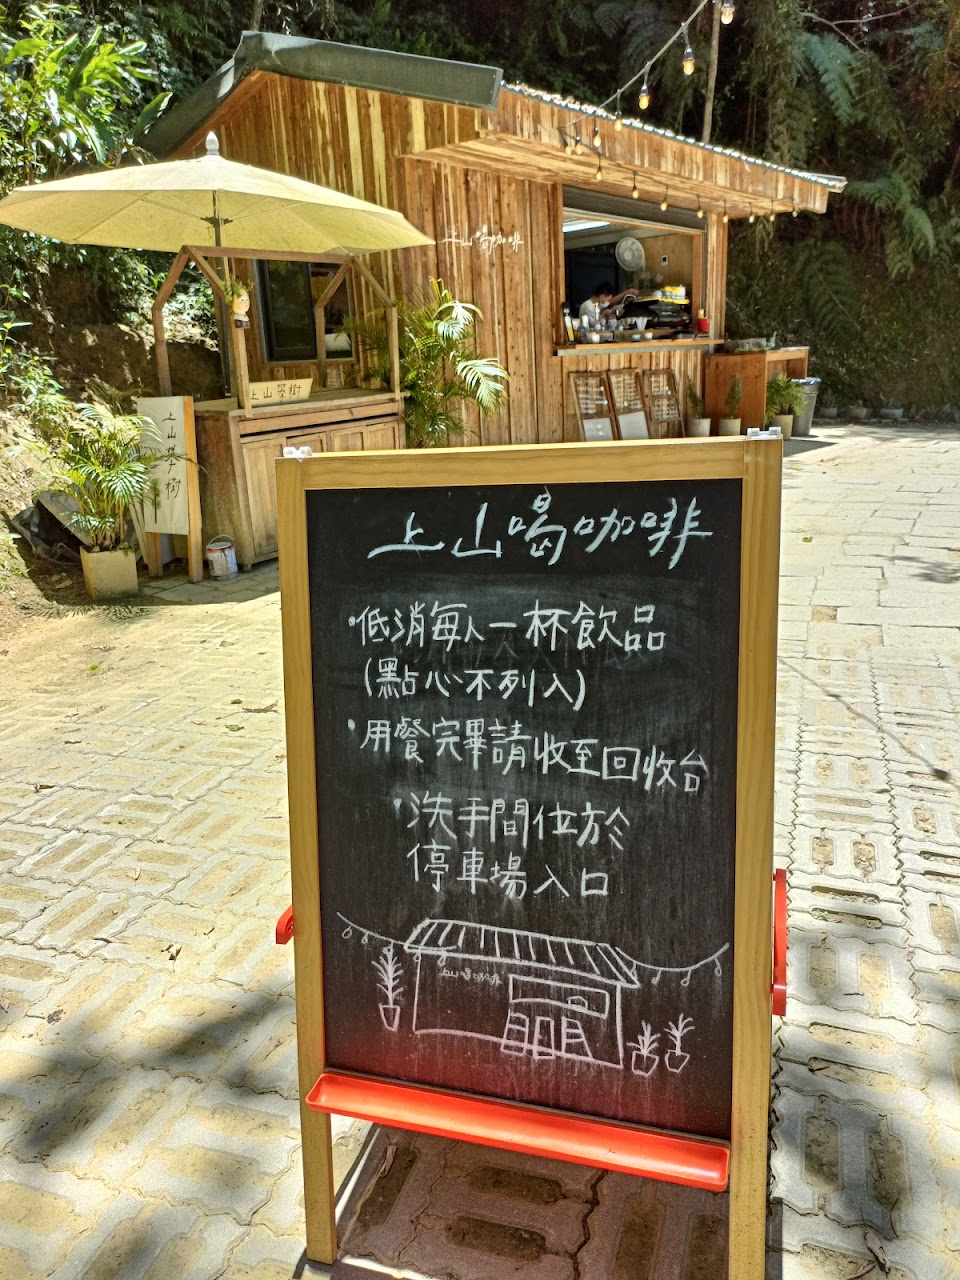 上山喝咖啡
上山學樹
上山學樹
上山喝咖啡
•低消每人一杯飲品
(點心不列入)
•用餐完畢請收至回收台
•洗手間位於
停車場入口
上山喝咖啡